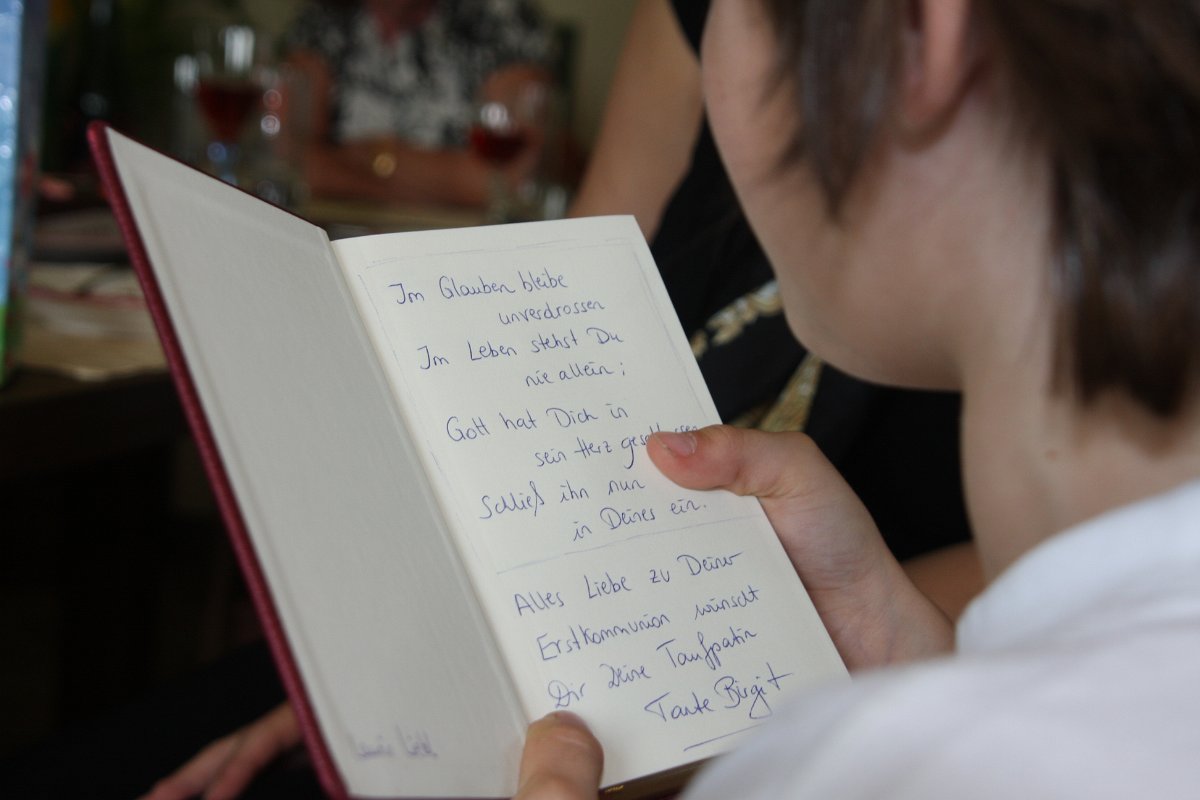 Im Glauben bleibe
unverdrossen
Im Leben stehst Du
nie allein;
Gott hat Dich in
sein Herz geschlossen
Schließ ihn nun
in Deines ein.
Alles Liebe zu Deiner
Erstkommunion wünscht
Dir Deine Taufpatin
Tante Birgit